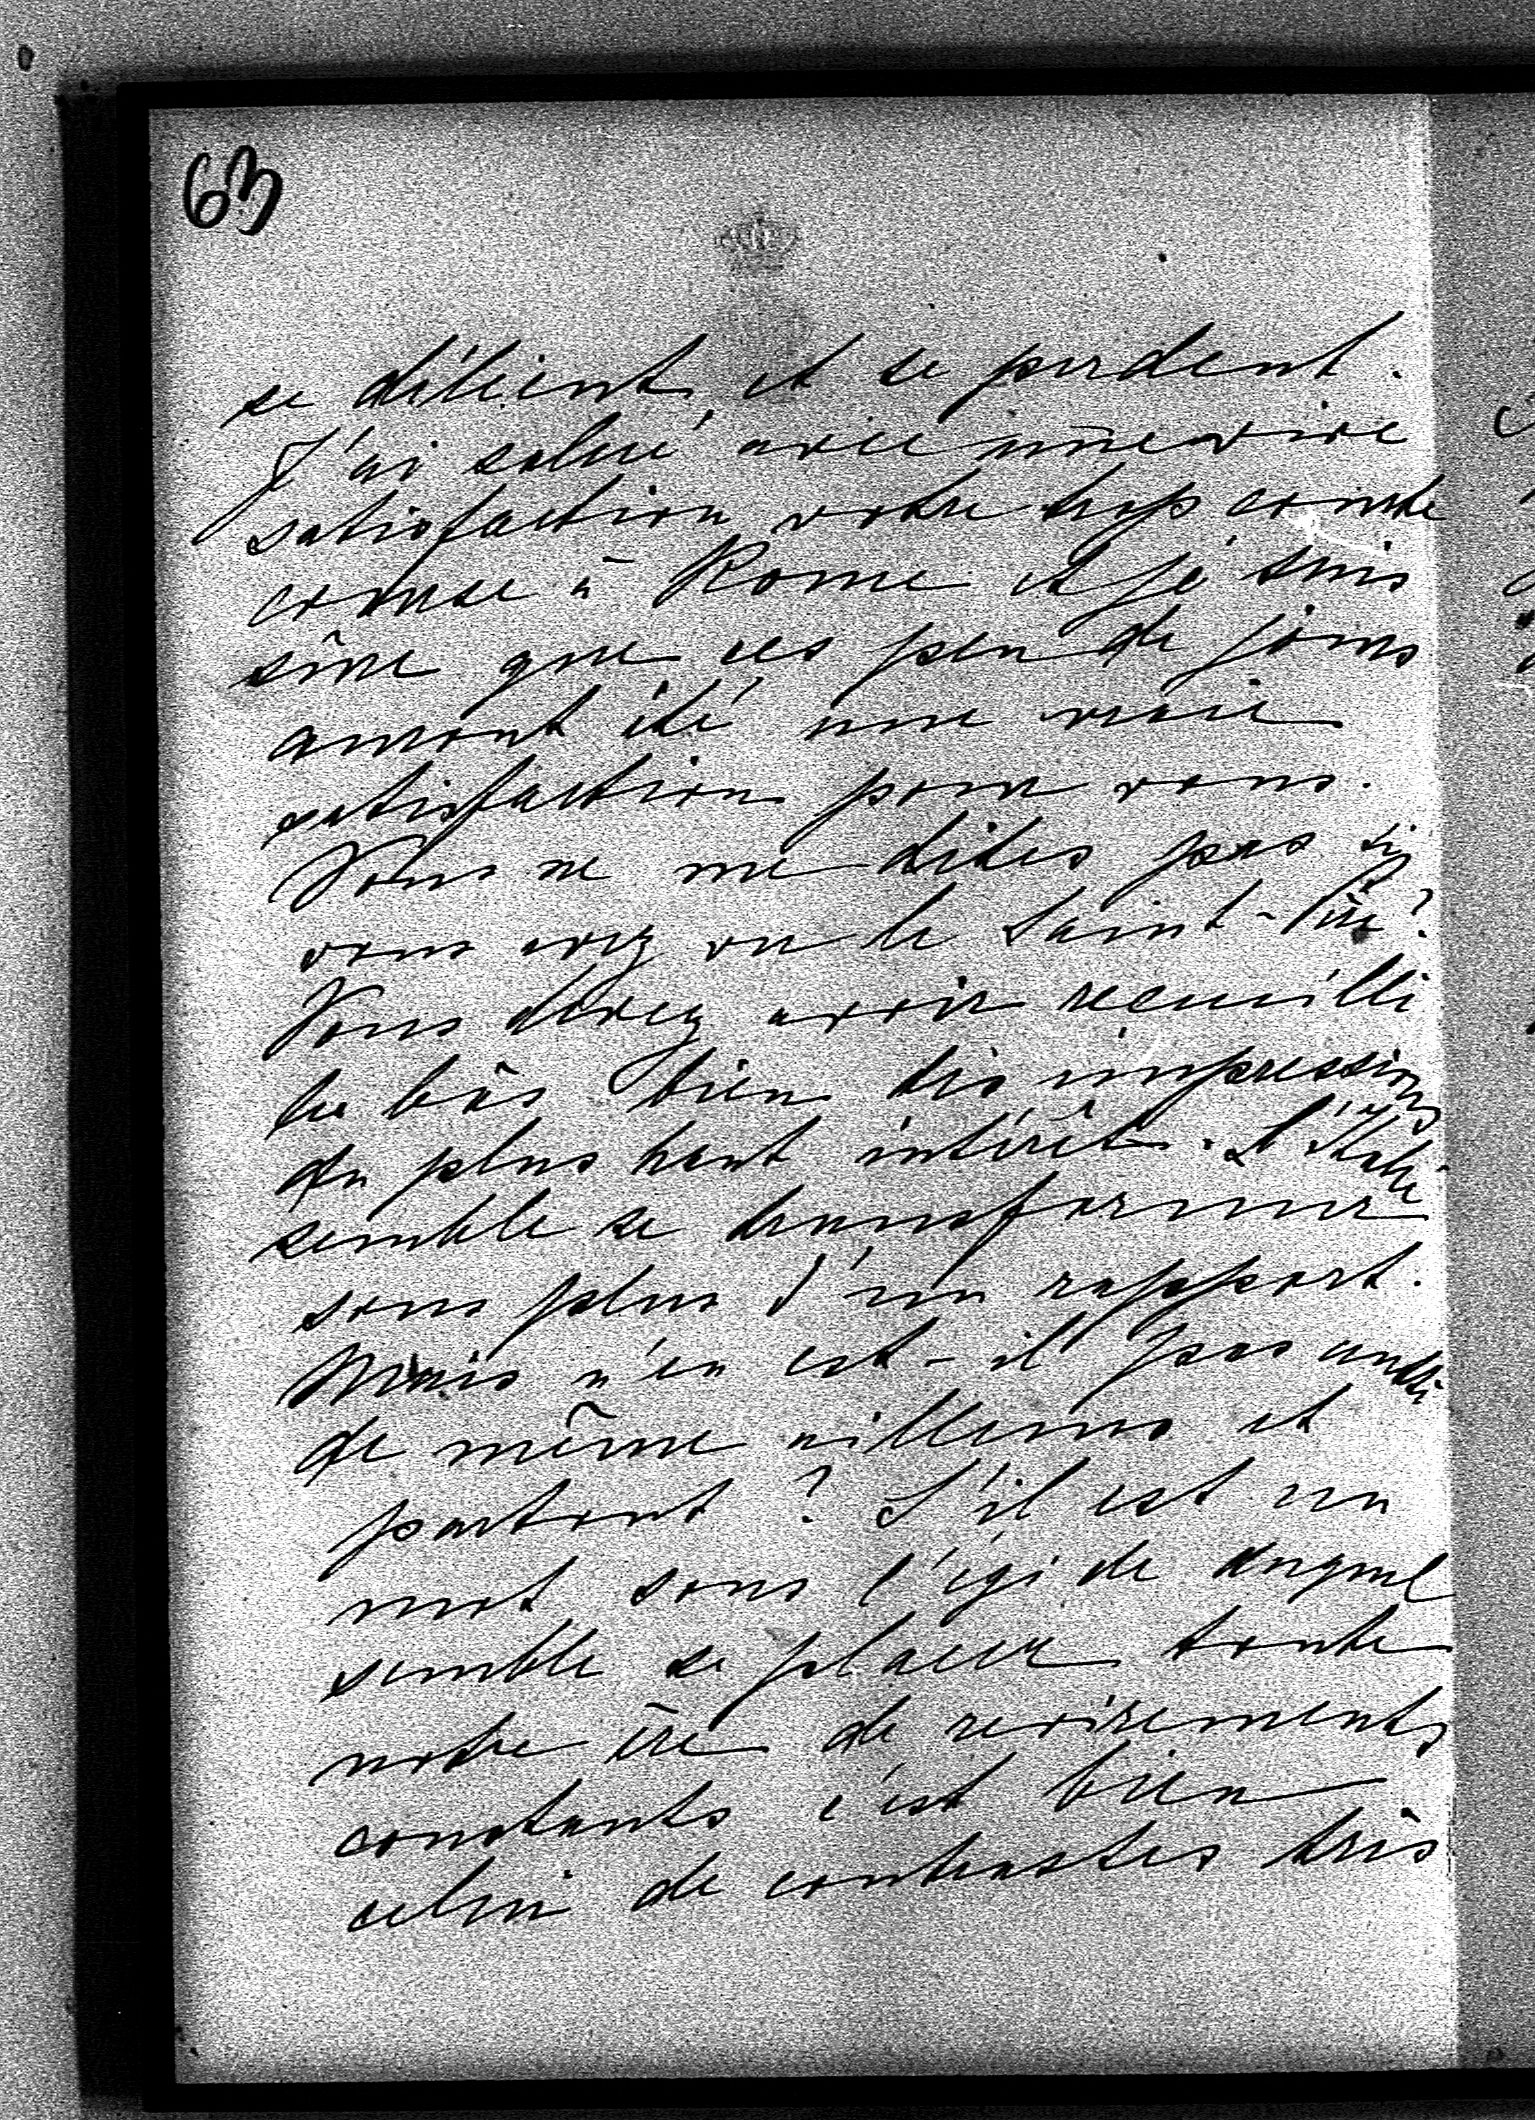 63
se délient et se perdent.
J'ai salué avec une vive
satisfaction votre trop courte
course à Rome et je suis
sûre que ces peu de jours
auront été une vraie
satisfaction pour vous.
Vous ne me dites pas si
vous avez vu le Saint-Père?
Vous devez avoir recueilli
là bàs bien des impressions
du plus haut intérêt. L'Italie
semble se transformer
sous plus d'un rapport.
Mais n'en est-il pas
de même ailleurs et
partout? S'il est un
mot sous l'égide duquel
semble se placer toute
notre ère de revirements
constants c'est bien
celui de contrastes très